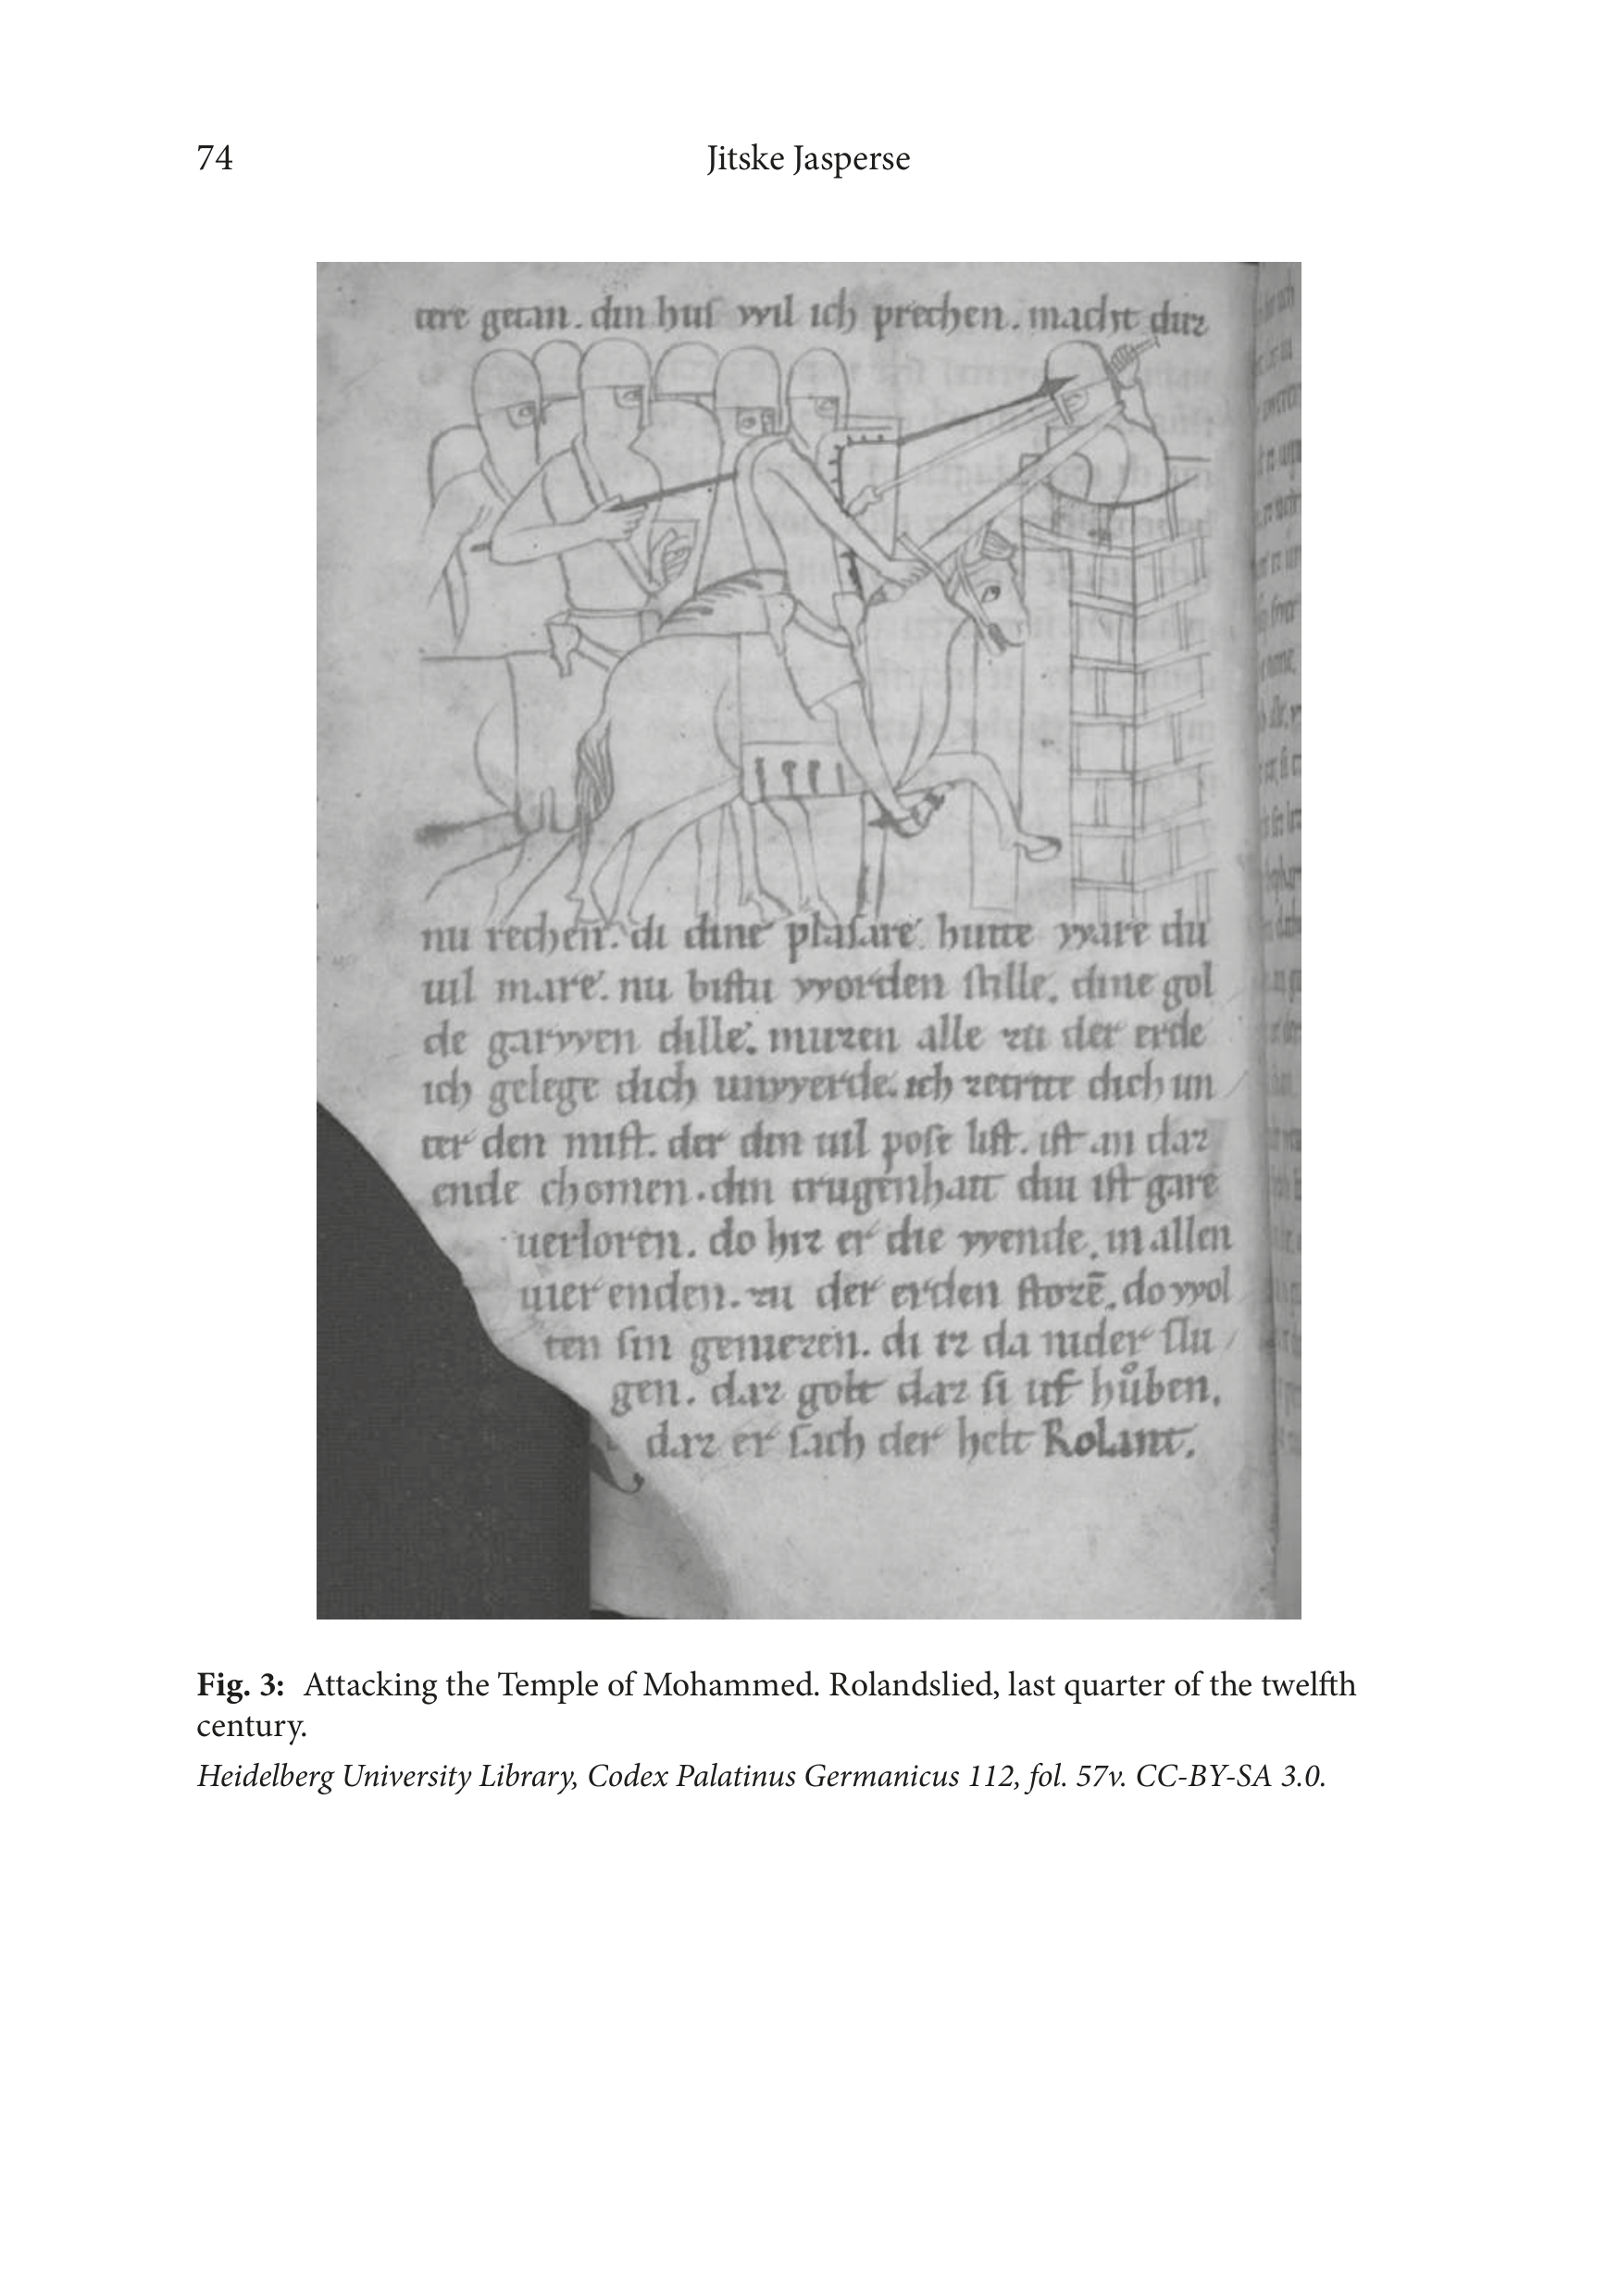 74
Jitske Jasperse
tere getan. din huſ wil ich prechen. macht duz
nu rechen. di dine plaſare. hutte ware du
uil mare. nu biſtu worden ſtille. dine gol
de garwen dille. muzen alle zu der erde
ich gelege dich unwerde. ich zetrite dich un
ter den miſt. der din uil poſe liſt. iſt an daz
ende chomen. din trugenhait diu iſt gare
uerloren. do hiz er die wende. in allen
uier enden. zu der erden ſtozē. do wol
ten ſin geniezen. di iz da nider ſlu
gen. daz golt daz ſi uf hůben.
daz er ſach der helt Rolant.
Fig. 3: Attacking the Temple of Mohammed. Rolandslied, last quarter of the twelfth
century.
Heidelberg University Library, Codex Palatinus Germanicus 112, fol. 57v. CC-BY-SA 3.0.